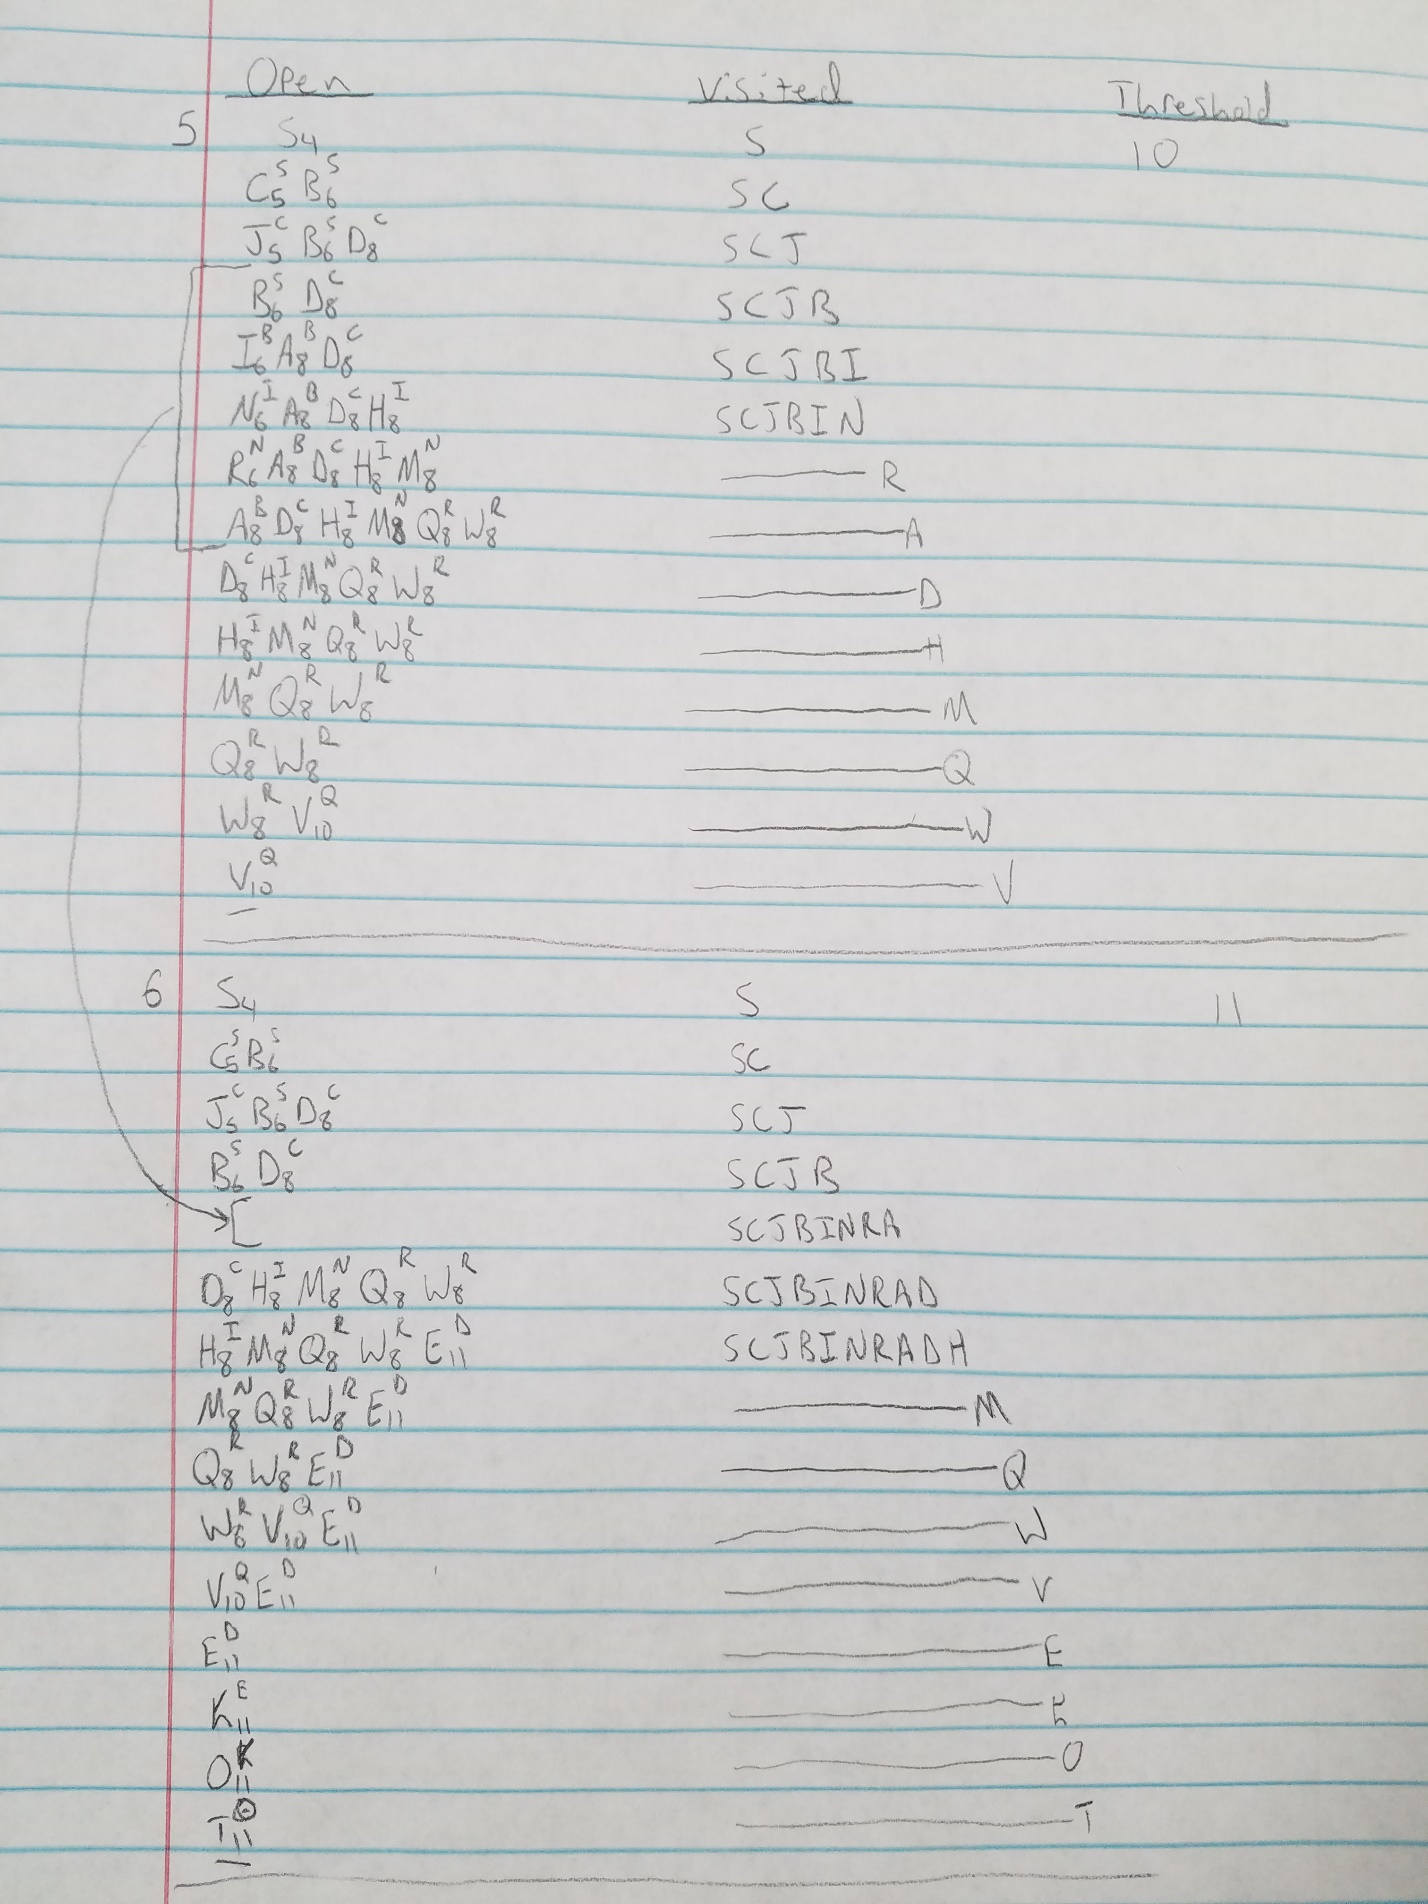 Open Visited Threshold
5 S4 S 10
C5^S B6^S SC
J5^C B6^S D8^C SCJ
B6^S D8^C SCJB
I6^B A8^B D8^C SCJBI
N6^I A8^B D8^C H8^I SCJBIN
R6^N A8^B D8^C H8^I M8^N —— R
A8^B D8^C H8^I M8^N Q8^R W8^R —— A
D8^C H8^I M8^N Q8^R W8^R —— D
H8^I M8^N Q8^R W8^R —— H
M8^N Q8^R W8^R —— M
Q8^R W8^R —— Q
W8^R V10^Q —— W
V10^Q —— V
6 S4 S 11
C5^S B6^S SC
J5^C B6^S D8^C SCJ
B6^S D8^C SCJB
[ SCJBINRA
D8^C H8^I M8^N Q8^R W8^R SCJBINRAD
H8^I M8^N Q8^R W8^R E11^D SCJBINRADH
M8^N Q8^R W8^R E11^D —— M
Q8^R W8^R E11^D —— Q
W8^R V10^Q E11^D —— W
V10^Q E11^D —— V
E11^D —— E
K11^E —— K
O11^K —— O
T11^O —— T